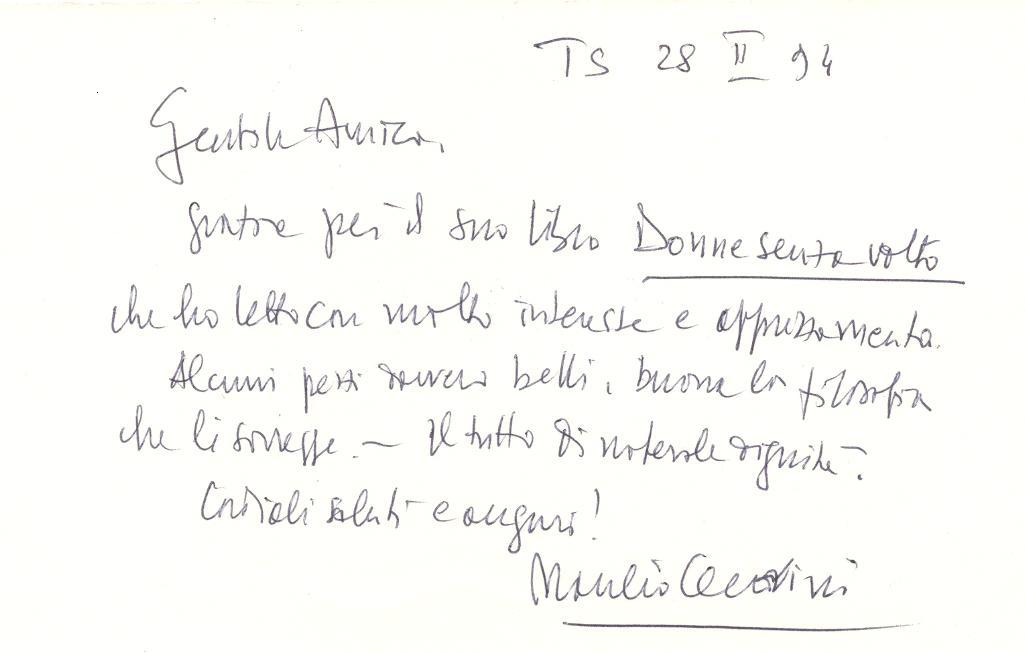 TS 28 II 94
Gentile Amica,
grazie per il suo libro Donne senza volto
che ho letto con molto interesse e apprezzamento.
Alcuni pezzi davvero belli, buona la filosofia
che li sorregge. — Il tutto di notevole dignità.
Cordiali saluti e auguri!
Manlio Cecovini